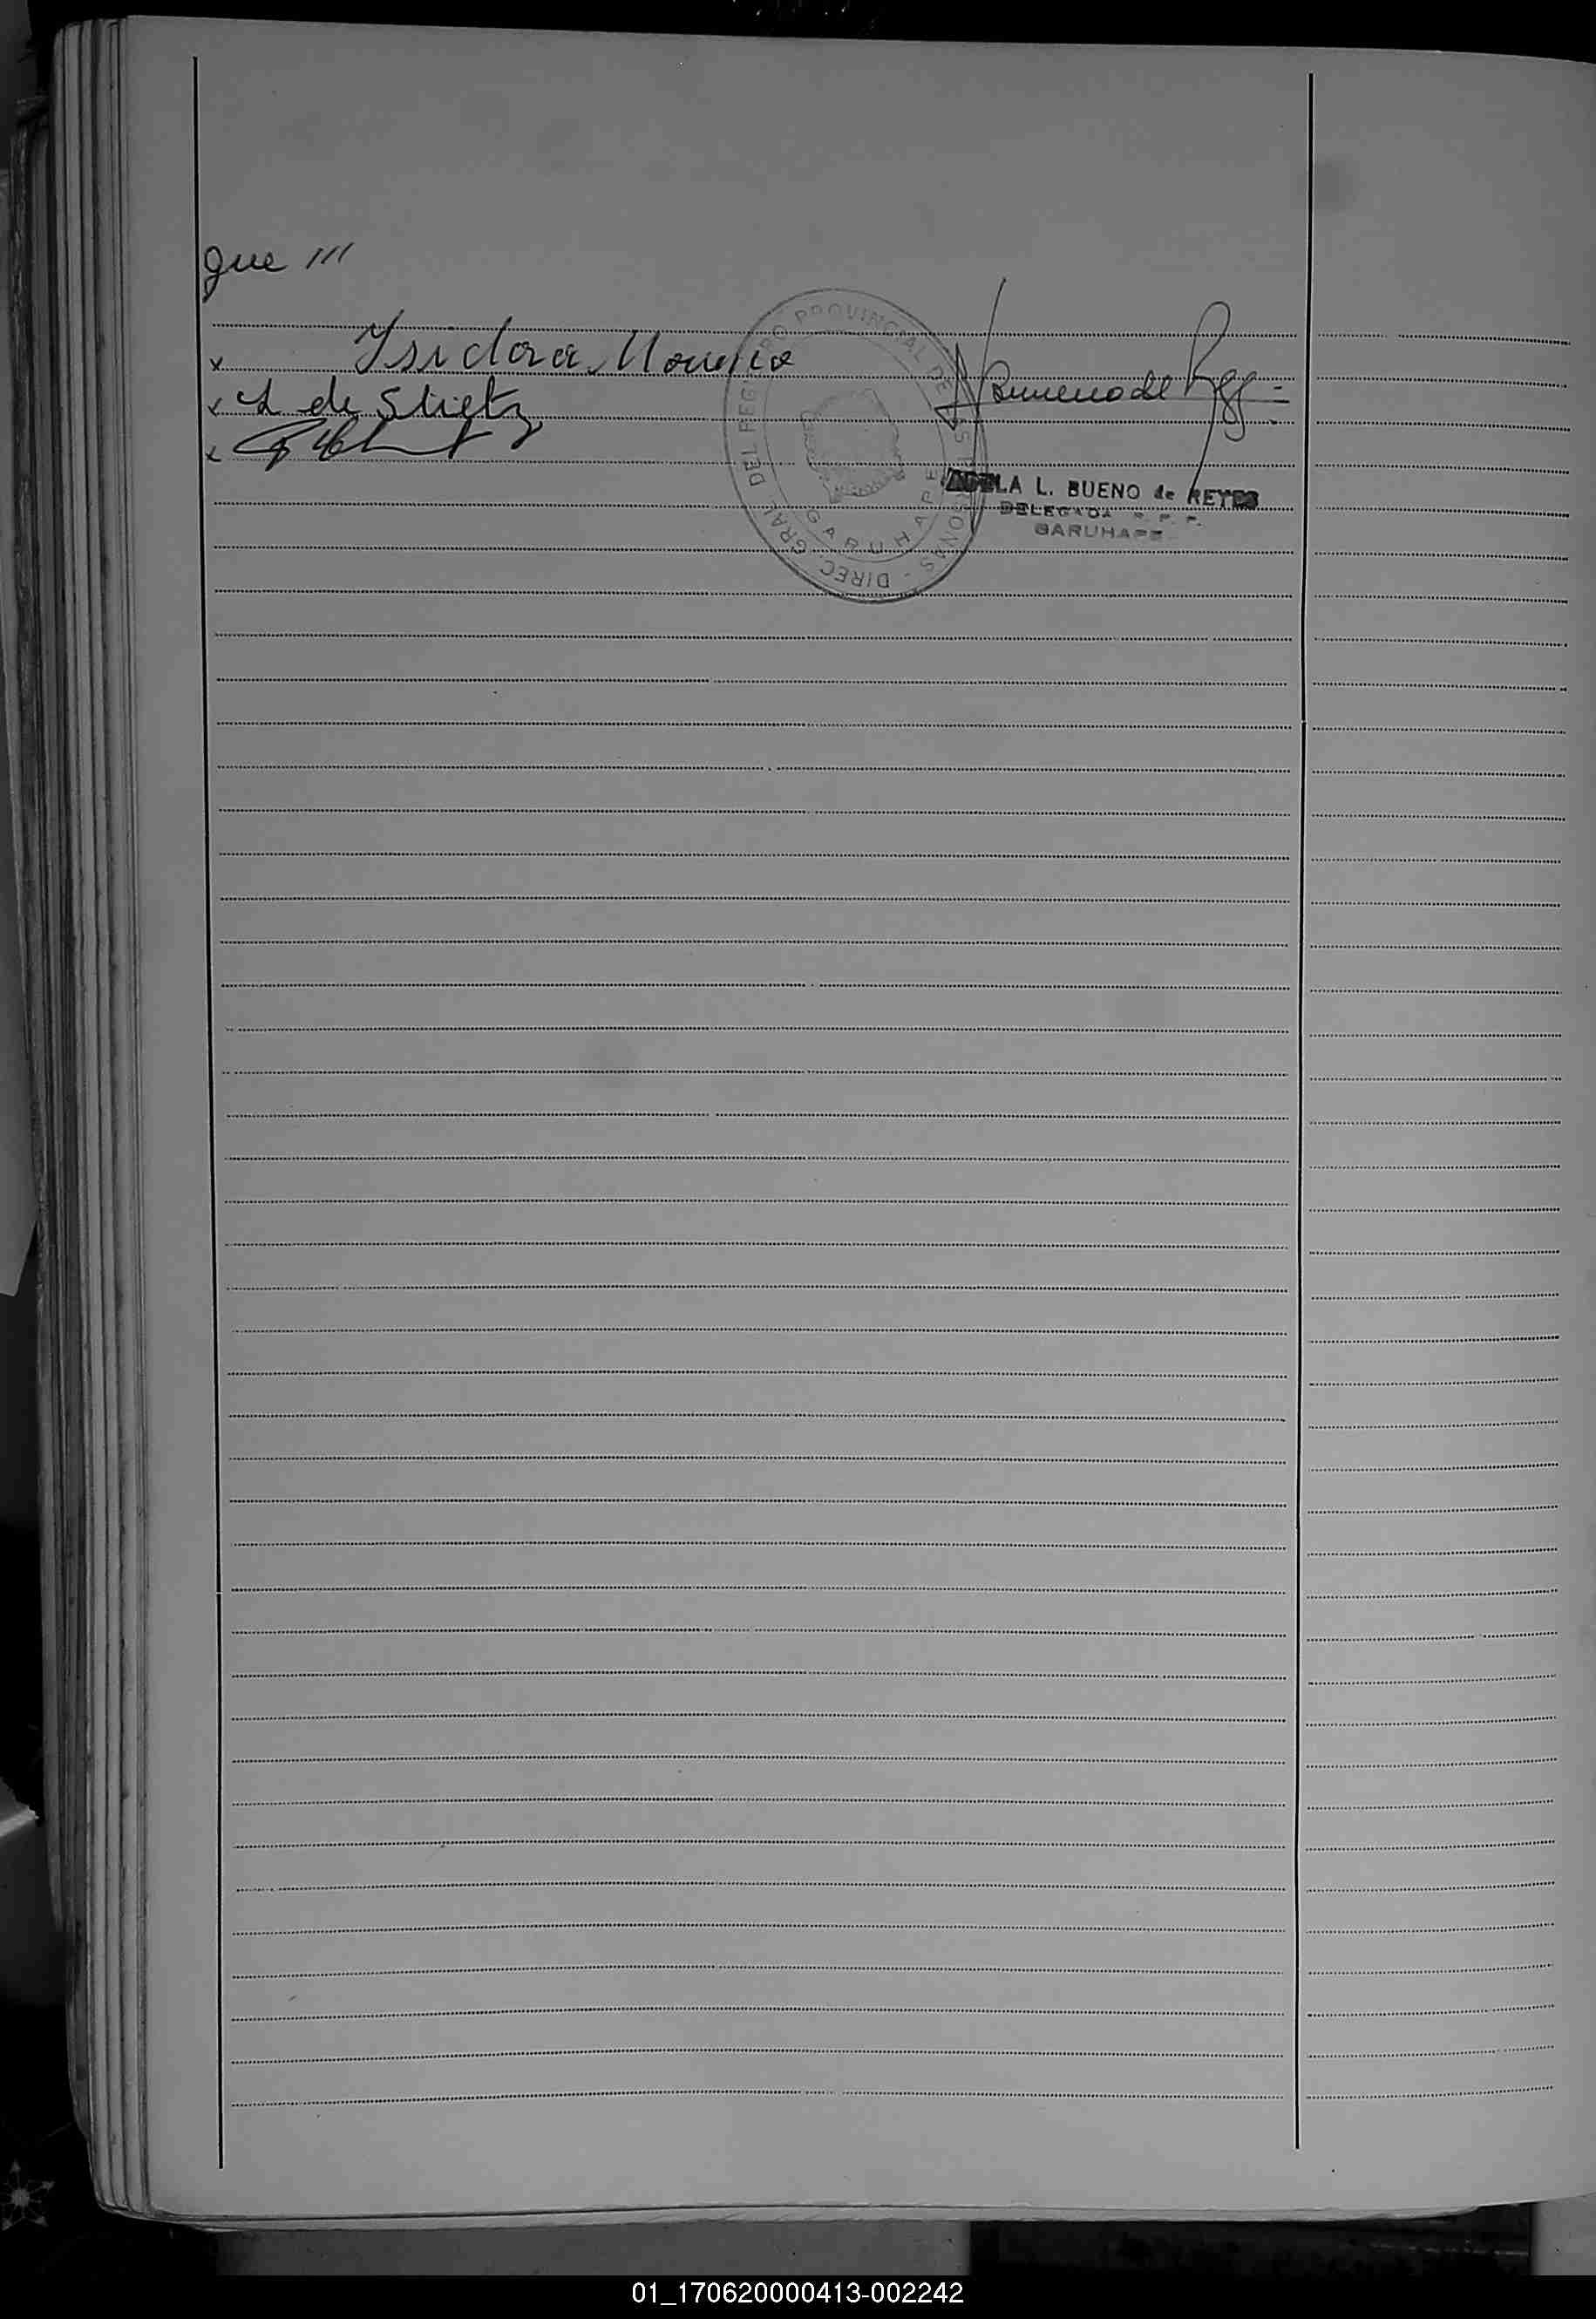 que ///
x Isidora Moreno
x L de Stietz
x
ABueno de Reyes
DIREC. GRAL. DEL REGISTRO PROVINCIAL DE LAS PERSONAS -
GARUHAPE
ADELA L. BUENO de REYES
DELEGADA R. P. P.
GARUHAPE
01_170620000413-002242